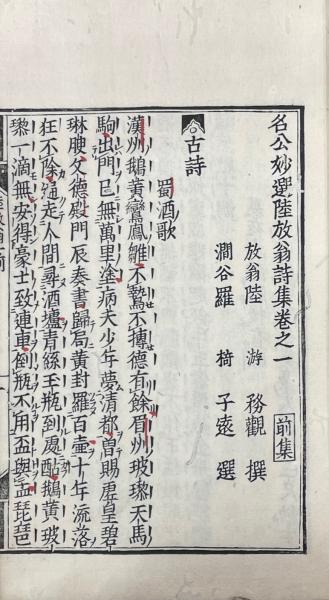 名公妙選陸放翁詩集卷之一 前集
放翁陸 游 務觀 撰
澗谷羅 椅 子遠 選
古詩
蜀酒歌
漢州鵝黃鸞鳳雛不鷙不搏德有餘眉州玻瓈天馬
駒出門已無萬里塗病夫少年夢清都曽賜虚皇碧
琳腴文德殿門辰奏書歸局黃封羅百壷十年流落
狂不除遍走人間尋酒壚青絲玉瓶到處酤鵝黃玻
瓈一滴無安得豪士致連車倒瓶不用盃與盂琵琶